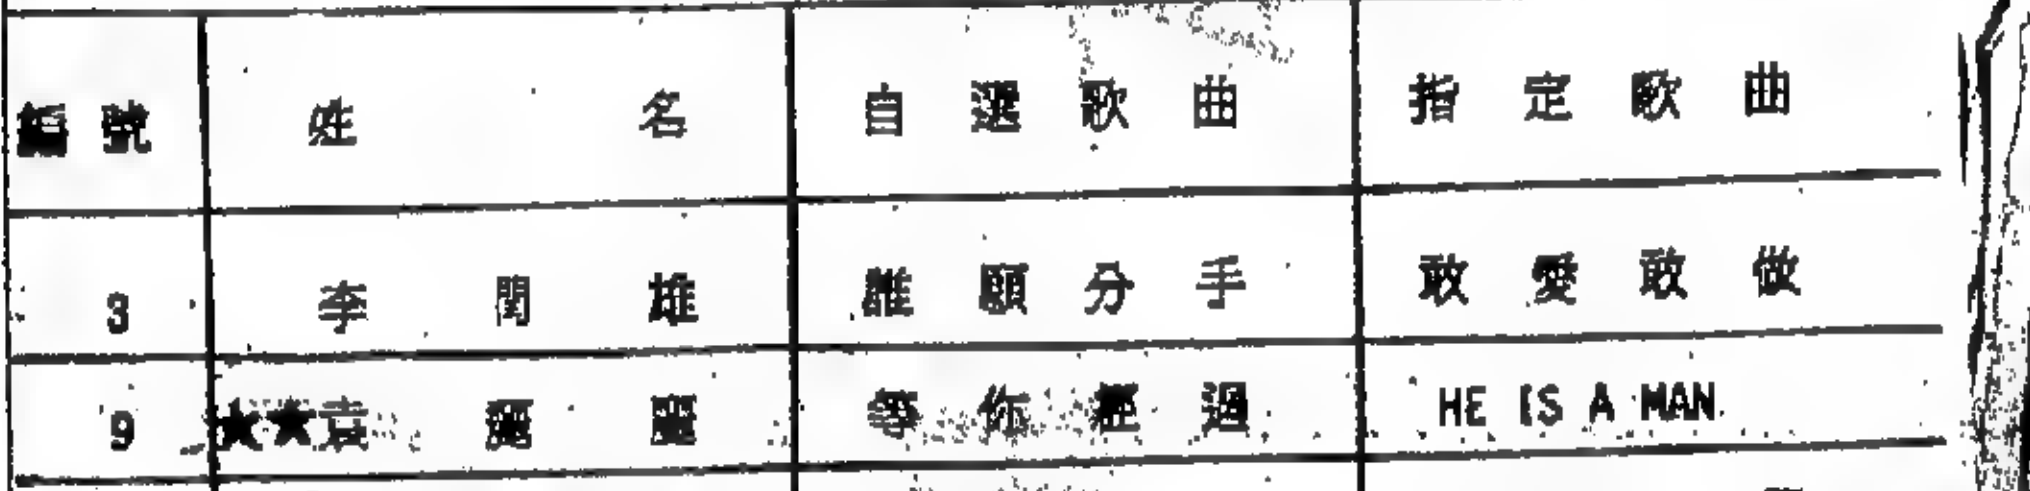 編號 姓名 自選歌曲 指定歌曲
3 李閏雄 誰願分手 敢愛敢做
9 ★★袁 等你經過 HE IS A MAN